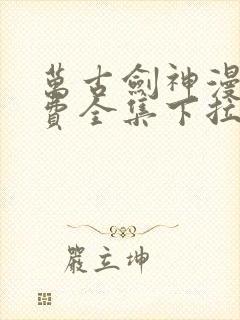 萬古劍神漫
費全集下拉
嚴立坤